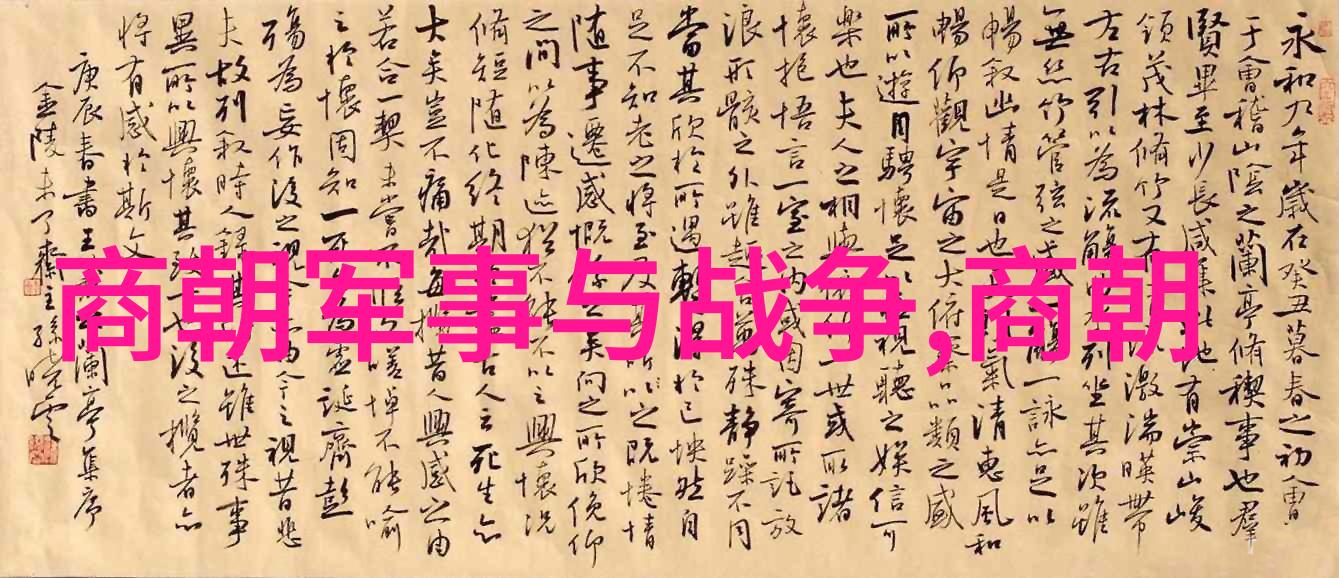 商朝军事与战争,商朝
永和九年歲在癸丑暮春之初會
于會稽山陰之蘭亭脩禊事也羣
賢畢至少長咸集此地有崇山峻
領茂林脩竹又有激湍暎帶
左右引以為流觴列坐其次雖
無絲竹管弦之盛一觴一詠亦足以
暢敘幽情是日也氣清惠風和
暢仰觀宇宙之大俯察品類之盛
所以遊目騁懷足以視聽之娛信可
樂也夫人之相與俯仰一世或取諸
懷抱悟言一室之內或因寄所託放
浪形骸之外雖趣舍萬殊靜躁不同
當其欣於所遇暫得於己快然自
足不知老之將至及其所以之既惓情
隨事遷感慨係之矣向之所欣俛仰
之間以為陳迹猶不能不以之興懷況
脩短隨化終期於盡古人云死生亦
大矣豈不痛哉每攬昔人興感之由
若合一契未嘗不嗟悼不能喻
之於懷固知一死為虛誕齊彭
殤為妄作後之視今由今之視昔悲
夫故列敘時人錄其述雖世殊事
異所以興懷其致一也後之攬者亦
將有感於斯文
庚辰春書王蘭亭集序
金陵未了齋主孫曉雲